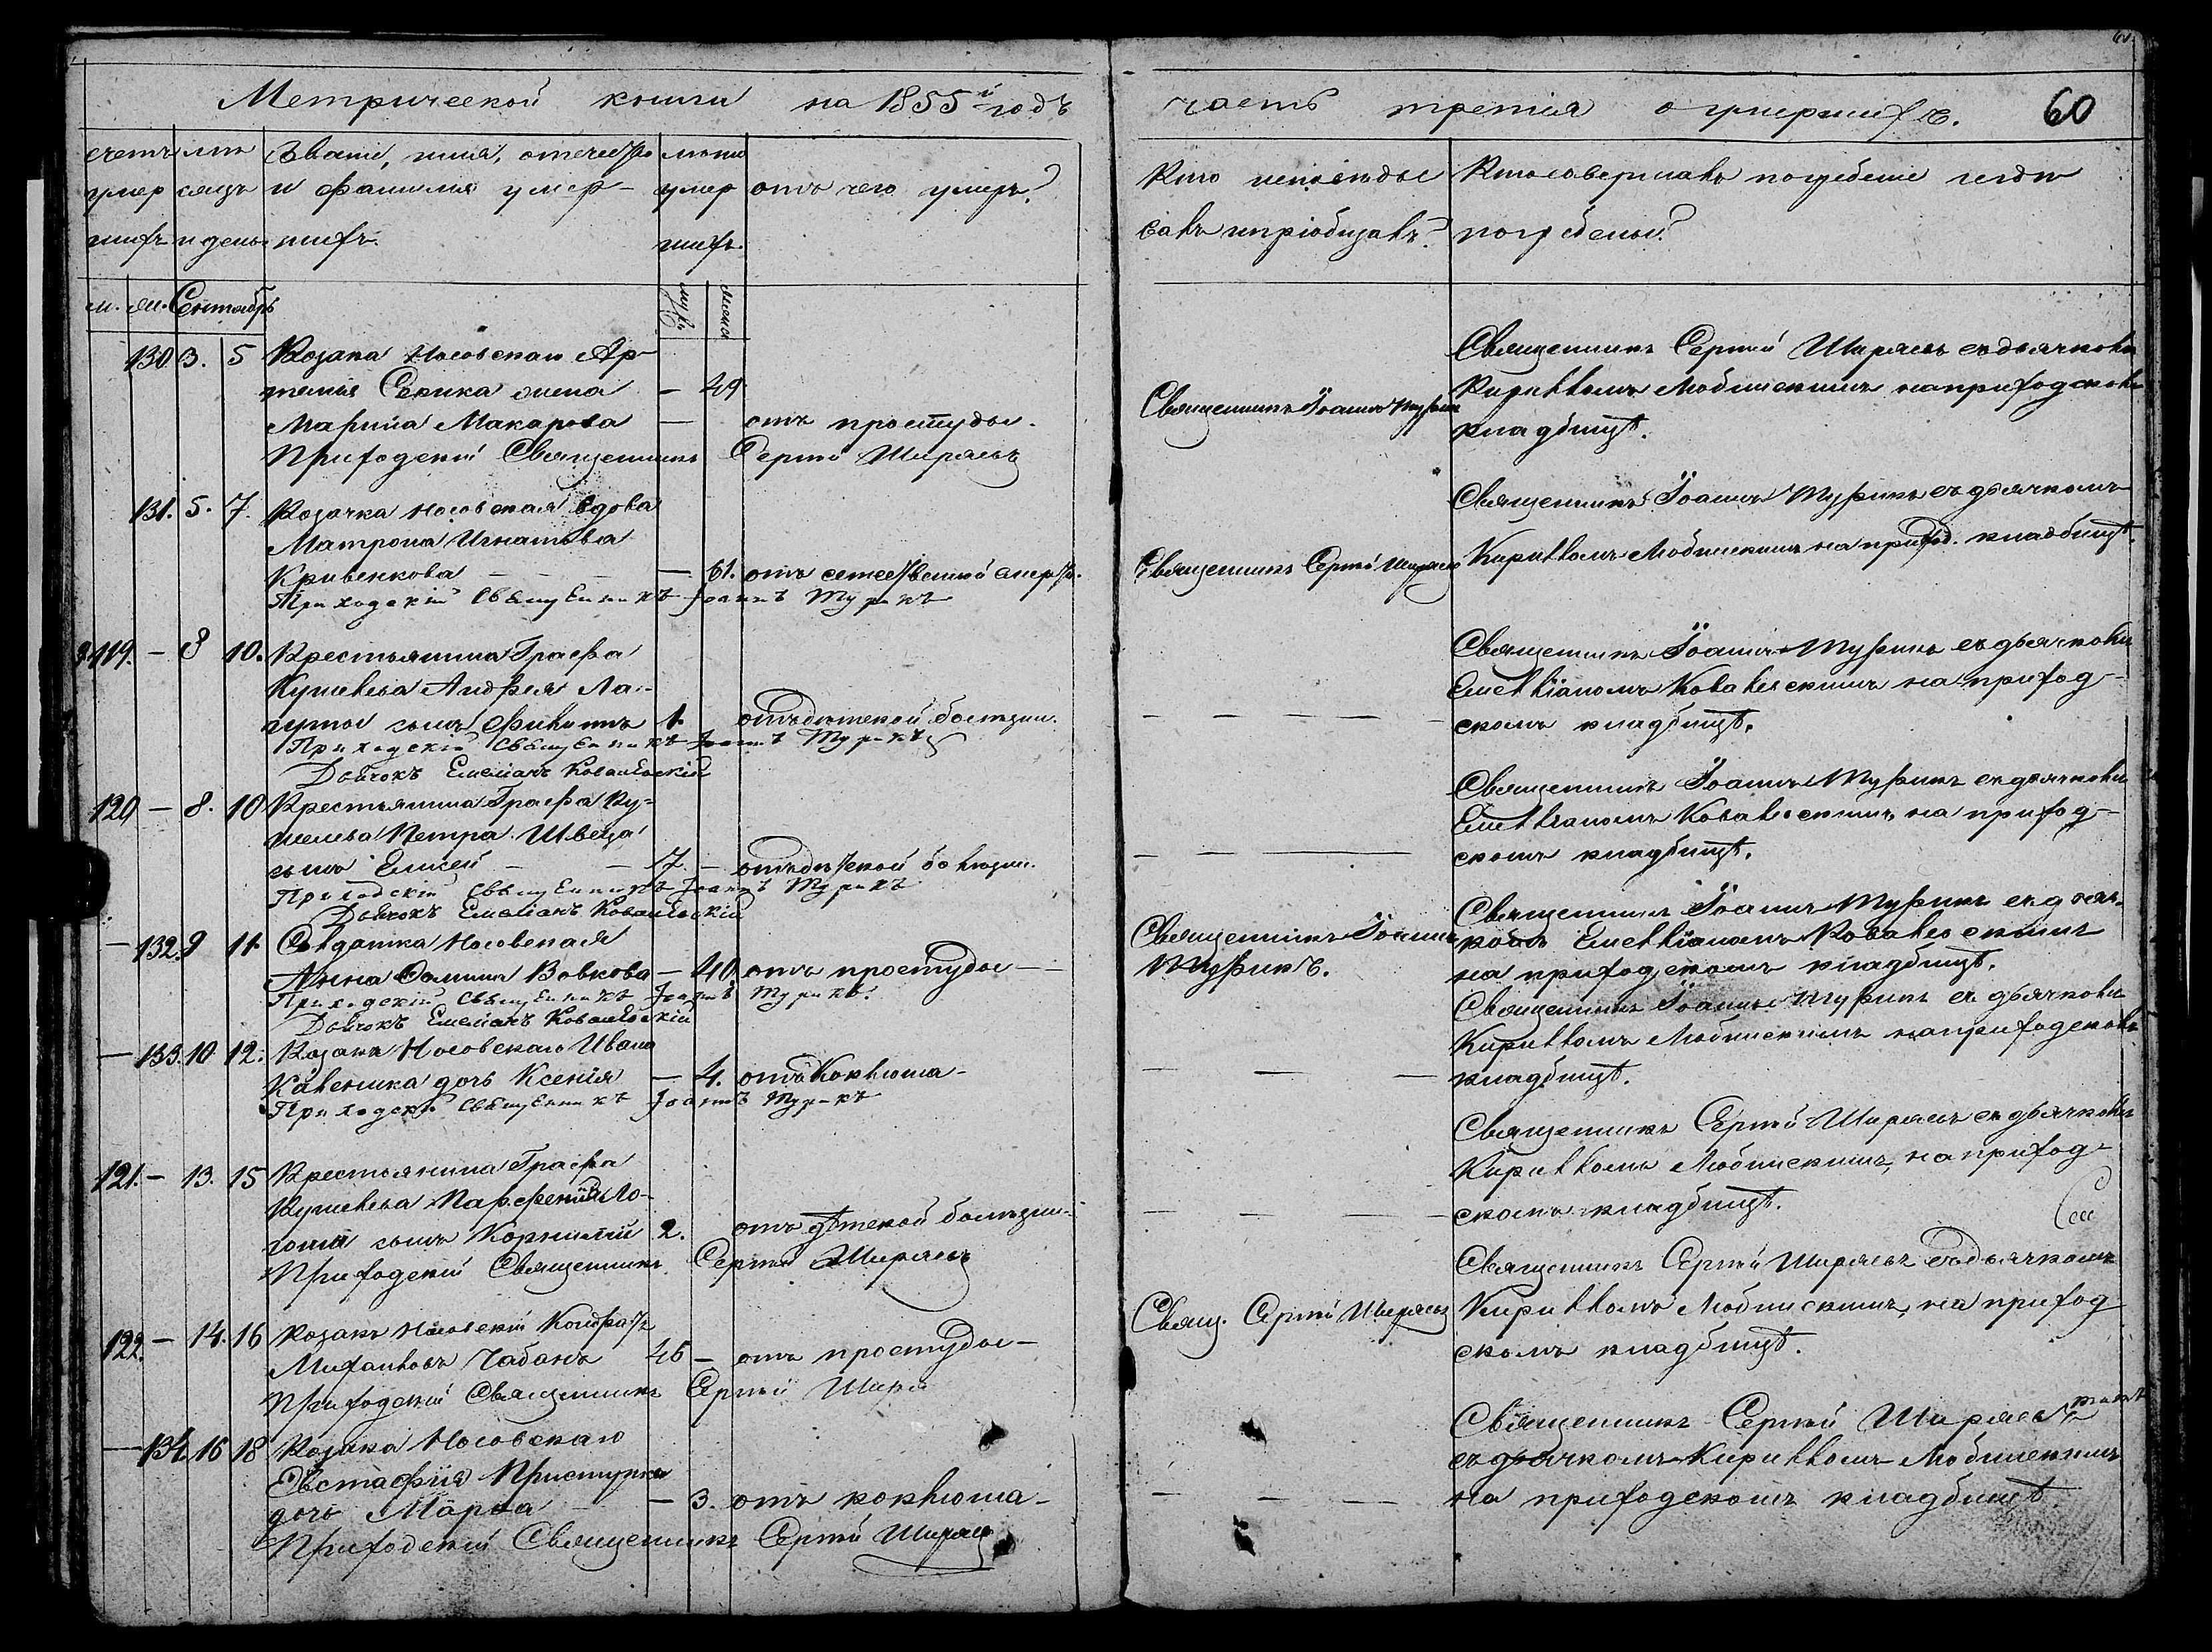 Метрической книги на 1855й годъ
счетъ умершихъ
мѣсяцъ и день
Званіе, имя, отчество и фамилія умершихъ.
лѣта умершихъ.
отъ чего умеръ?
м. ж. Сентябрь
муж. женс.
130 3. 5 Козака Носовскаго Ар-
темія жена — 49
Марина Макарова — отъ простуды.
Приходскій Священникъ Сергій Ширяевъ
131. 5. 7. Козачка Носовская вдова
Матрона Игнатова
Кривенкова — 61. отъ естественной смерти.
Приходскій Священникъ Іоаннъ
119. — 8 10. Крестьянина Графа
Кушелева Андрея
сынъ 1. отъ дѣтской болѣзни.
Приходскій Священникъ Іоаннъ
Дьячокъ Емеліанъ Ковалевскій
120 — 8. 10 Крестьянина Графа Ку-
шелева Петра Швеца
сынъ Елисей — 7. — отъ дѣтской болѣзни.
Приходскій Священникъ Іоаннъ
Дьячокъ Емеліанъ Ковалевскій
— 132. 9 11. Солдатка Носовская
Анна Вовкова — 40. отъ простуды —
Приходскій Священникъ Іоаннъ
Дьячокъ Емеліанъ Ковалевскій
— 133. 10 12. Козака Носовскаго Ивана
дочь Ксенія — 4. отъ коклюша —
Приходскій Священникъ Іоаннъ
121. — 13. 15 Крестьянина Графа
Кушелева Парфенія Ло-
сынъ Корнилій 2. отъ дѣтской болѣзни —
Приходскій Священникъ Сергій Ширяевъ
122. — 14. 16 Козакъ Носовскій Кондратъ
Михайловъ Чабанъ 46 — отъ простуды —
Приходскій Священникъ Сергій
— 134. 16 18 Козака Носовскаго
Евстафія Приступка
дочь Марфа — 3. отъ коклюша —
Приходскій Священникъ Сергій Ширяевъ
часть третія о умершихъ. 60
Кто исповѣды-
валъ и пріобщалъ?
Кто совершалъ погребеніе и гдѣ
погребены?
Священникъ Іоаннъ
Священникъ Сергій Ширяевъ съ дьячкомъ
Кирилломъ Любинскимъ на приходскомъ
кладбищѣ.
Священникъ Сергій Ширяевъ
Священникъ Іоаннъ съ дьячкомъ
Кирилломъ Любинскимъ на приход. кладбищѣ.
Священникъ Іоаннъ съ дьячкомъ
Емелліаномъ Ковалевскимъ на приход-
скомъ кладбищѣ.
Священникъ Іоаннъ съ дьячкомъ
Емелліаномъ Ковалевскимъ на приход-
скомъ кладбищѣ.
Священникъ Іоаннъ
Священникъ Іоаннъ съ дьяч-
комъ Емелліаномъ Ковалевскимъ
на приходскомъ кладбищѣ.
Священникъ Іоаннъ съ дьячкомъ
Кирилломъ Любинскимъ на приходскомъ
кладбищѣ.
Священникъ Сергій Ширяевъ съ дьячкомъ
Кирилломъ Любинскимъ, на приход-
скомъ кладбищѣ.
Свящ. Сергій Ширяевъ
Священникъ Сергій Ширяевъ съ дьячкомъ
Кирилломъ Любинскимъ, на приход
скомъ кладбищѣ.
Священникъ Сергій Ширяевъ
съ дьячкомъ Кирилломъ Любинскимъ
на приходскомъ кладбищѣ.